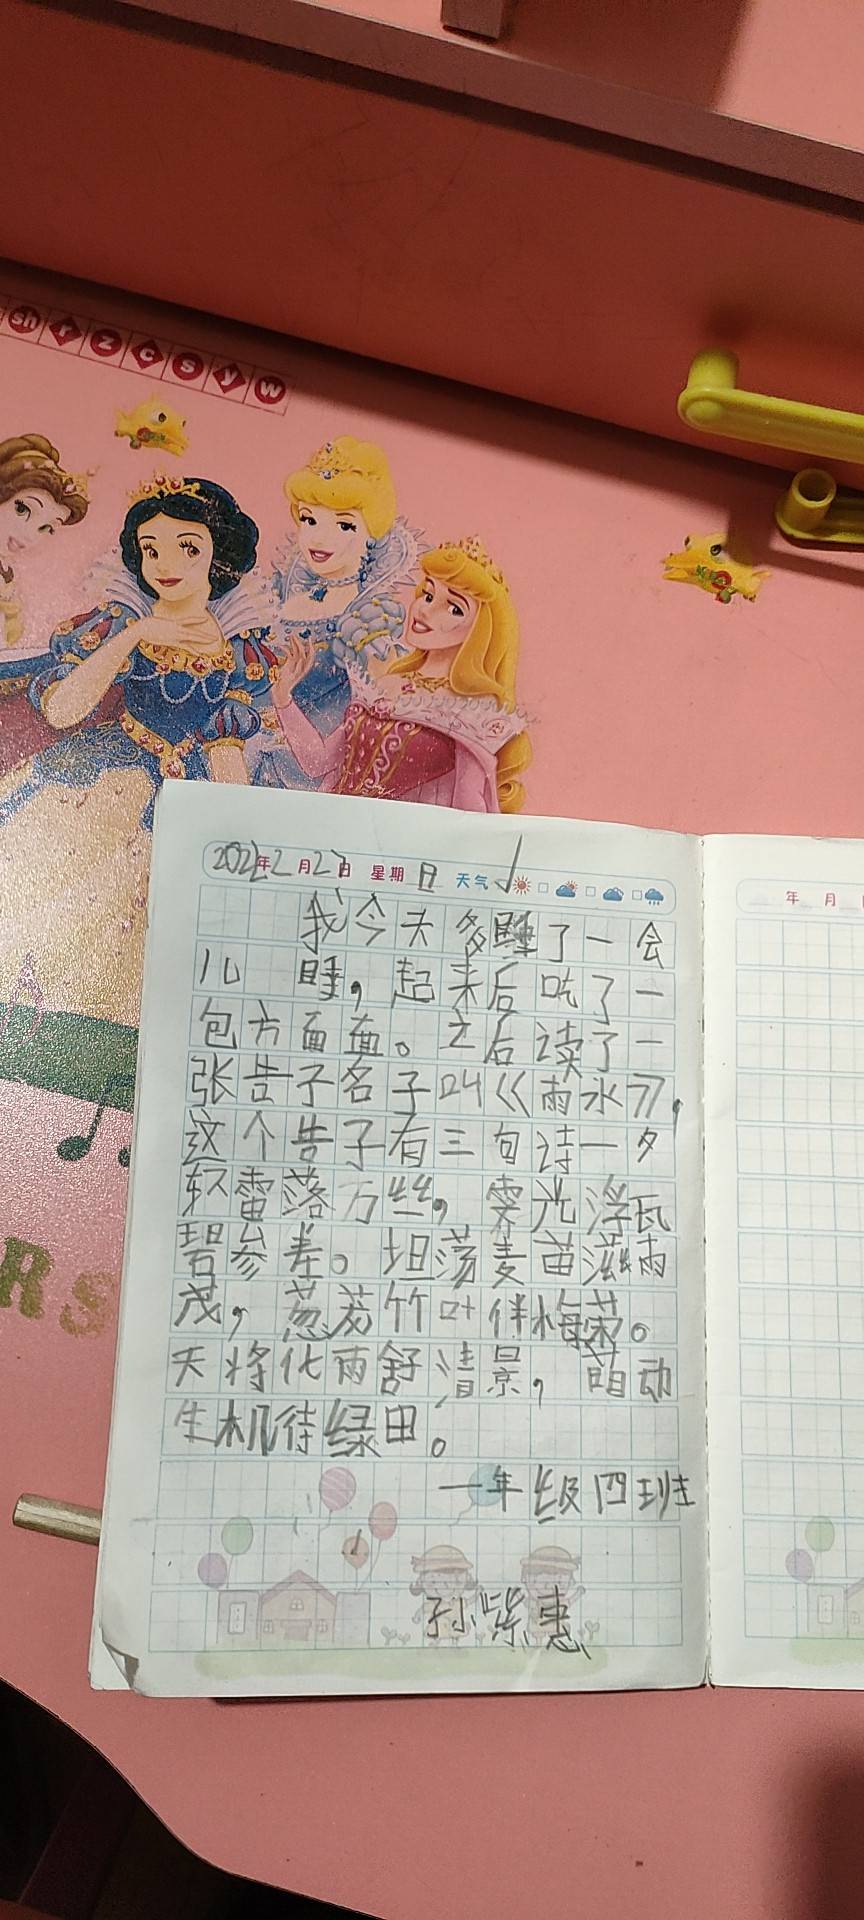 sh r z c s y w
2022年2月27日 星期日 天气
年 月
我今天多睡了一会
儿 睡,起来后吃了一
包方面面。之后读了一
张告子名子叫《雨水》,
这个告子有三句诗一夕
轻雷落万丝,霁光浮瓦
碧参差。坦荡麦苗滋雨
茂,葱茏竹叶伴梅菊。
天将化雨舒清景,萌动
生机待绿田。
一年级四班
孙紫惠
RS